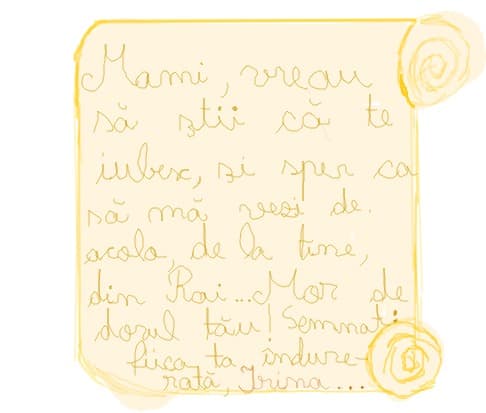 Mami, vreau
să știi că te
iubesc, și sper ca
să mă vezi de
acolo, de la tine,
din Rai...Mor de
dorul tău! Semnat:
fiica ta îndure-
rată, Irina...